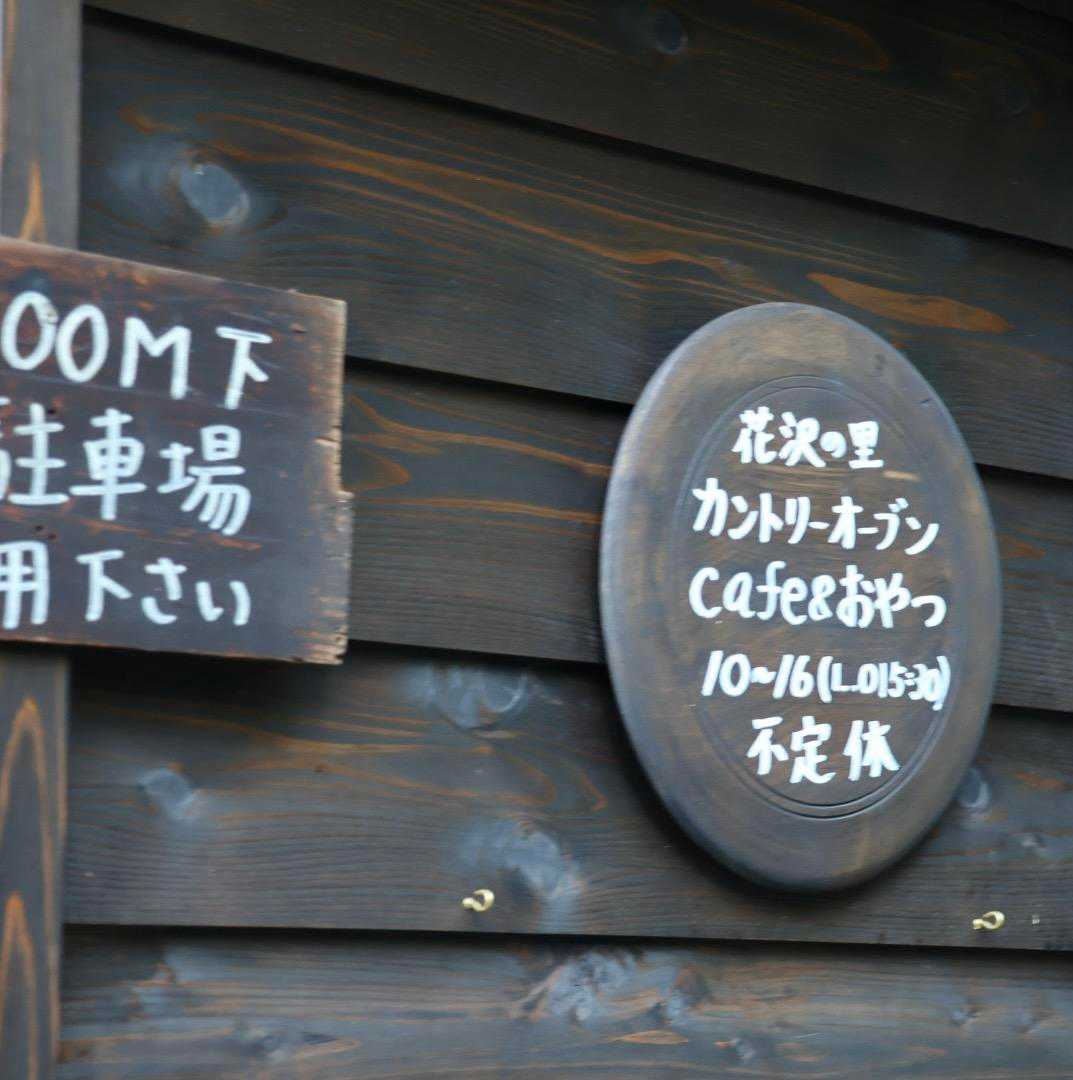 00M下
駐車場
用下さい
花沢の里
カントリーオーブン
cafe&おやつ
10~16(L.O15:30)
不定休